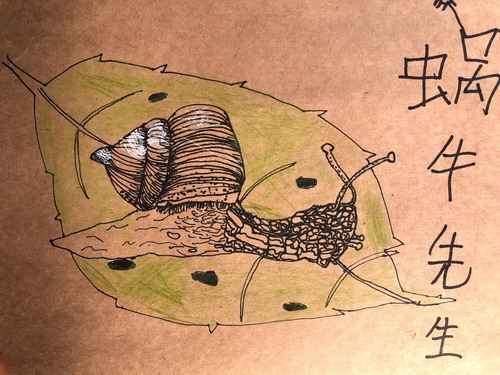 蜗牛先生